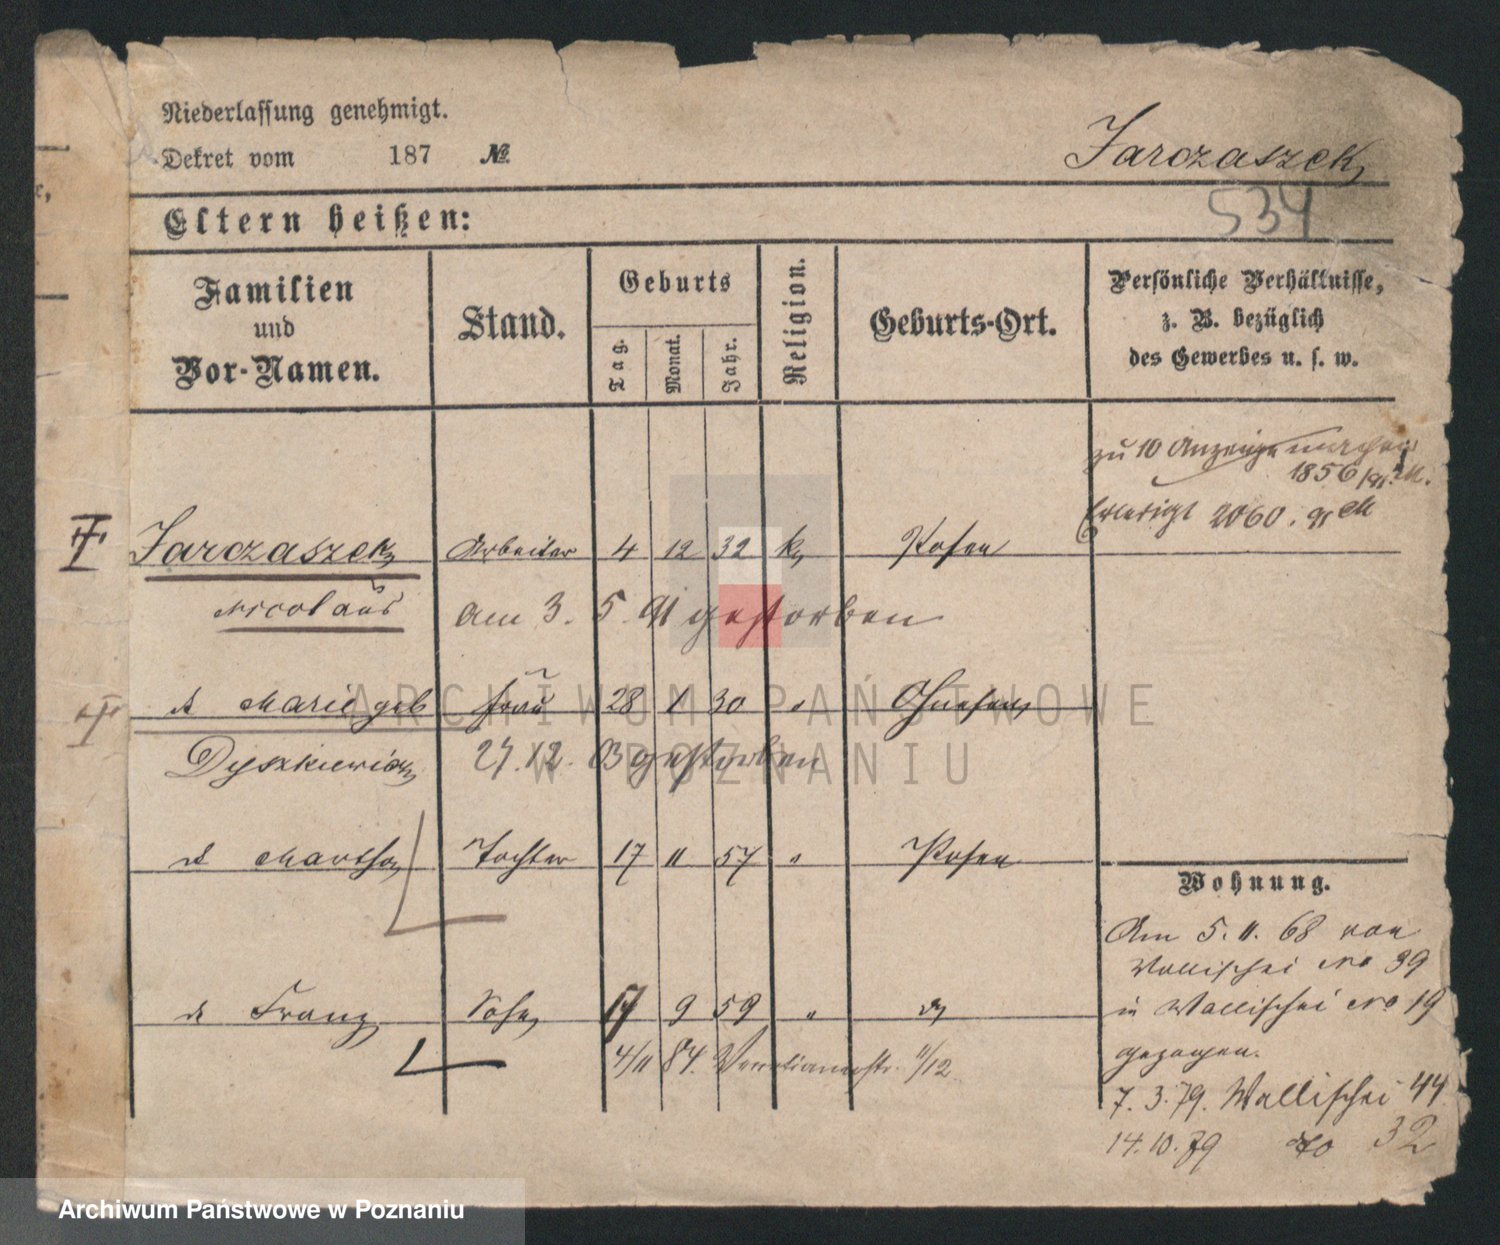 Niederlassung genehmigt.
Dekret vom 187 №
Jarczaszek
534
Eltern heißen:
Familien und Vor-Namen.
Stand.
Geburts
Tag.
Monat.
Jahr.
Religion.
Geburts-Ort.
Persönliche Verhältnisse,
z. B. bezüglich
des Gewerbes u. s. w.
zu 10 Anzeige machen
1856
Erledigt 2060.
Jarczaszek Arbeiter 4 12 32 k Posen
Nicolaus am 3. 5. 91 gestorben
d Marie geb Frau 28 1 30 " Gnesen
Dyszkiewicz 27. 12. 03 gestorben
d Martha Tochter 17 11 57 " Posen
Wohnung.
Am 5. 11. 68 von
Wallischei No 39
in Wallischei No 19
gezogen.
d Franz Sohn 17 9 59 " d
4/11 84. Venetianerstr. 11/12
7. 3. 79. Wallischei 44
14. 10. 79 do 32
ARCHIWUM PAŃSTWOWE
W POZNANIU
Archiwum Państwowe w Poznaniu